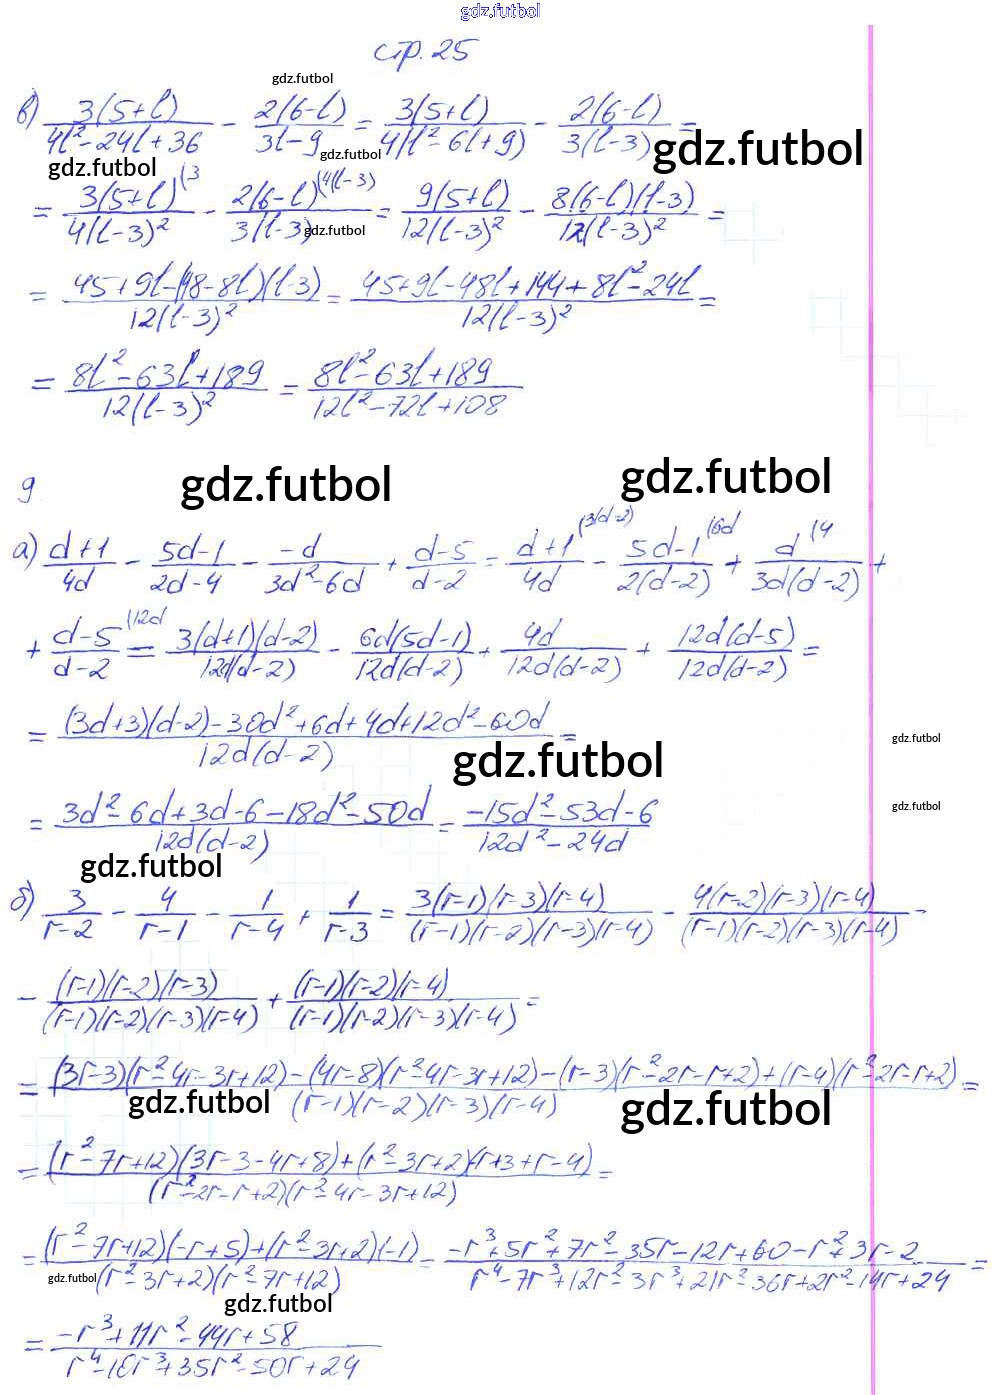 gdz.futbol
стр. 25
gdz.futbol
в) 3(5+l)/(4l²-24l+36) - 2(6-l)/(3l-9) = 3(5+l)/(4(l²-6l+9)) - 2(6-l)/(3(l-3)) =
gdz.futbol gdz.futbol gdz.futbol
= 3(5+l)⁽³/(4(l-3)²) - 2(6-l)⁽⁴⁽ˡ⁻³⁾/(3(l-3)) = 9(5+l)/(12(l-3)²) - 8(6-l)(l-3)/(12(l-3)²) =
gdz.futbol
= (45+9l-(48-8l)(l-3))/(12(l-3)²) = (45+9l-48l+144+8l²-24l)/(12(l-3)²) =
= (8l²-63l+189)/(12(l-3)²) = (8l²-63l+189)/(12l²-72l+108)
9 gdz.futbol gdz.futbol
а) (d+1)/(4d) - (5d-1)/(2d-4) - (-d)/(3d²-6d) + (d-5)/(d-2) = (d+1)/(4d) ⁽³⁽ᵈ⁻²⁾ - (5d-1)/(2(d-2)) ⁽⁶ᵈ + d/(3d(d-2)) ⁽⁴ +
+ (d-5)/(d-2) ⁽¹²ᵈ = 3(d+1)(d-2)/(12d(d-2)) - 6d(5d-1)/(12d(d-2)) + 4d/(12d(d-2)) + 12d(d-5)/(12d(d-2)) =
= ((3d+3)(d-2)-30d²+6d+4d+12d²-60d)/(12d(d-2)) =
gdz.futbol gdz.futbol
gdz.futbol
= (3d²-6d+3d-6-18d²-50d)/(12d(d-2)) = (-15d²-53d-6)/(12d²-24d)
gdz.futbol
б) 3/(r-2) - 4/(r-1) - 1/(r-4) + 1/(r-3) = 3(r-1)(r-3)(r-4)/((r-1)(r-2)(r-3)(r-4)) - 4(r-2)(r-3)(r-4)/((r-1)(r-2)(r-3)(r-4)) -
- (r-1)(r-2)(r-3)/((r-1)(r-2)(r-3)(r-4)) + (r-1)(r-2)(r-4)/((r-1)(r-2)(r-3)(r-4)) =
= ((3r-3)(r²-4r-3r+12)-(4r-8)(r²-4r-3r+12)-(r-3)(r²-2r-r+2)+(r-4)(r²-2r-r+2))/((r-1)(r-2)(r-3)(r-4)) =
gdz.futbol gdz.futbol
= ((r²-7r+12)(3r-3-4r+8)+(r²-3r+2)(-r+3+r-4))/((r²-2r-r+2)(r²-4r-3r+12)) =
= ((r²-7r+12)(-r+5)+(r²-3r+2)(-1))/((r²-3r+2)(r²-7r+12)) = (-r³+5r²+7r²-35r-12r+60-r²+3r-2)/(r⁴-7r³+12r²-3r³+21r²-36r+2r²-14r+24) =
gdz.futbol
gdz.futbol
= (-r³+11r²-44r+58)/(r⁴-10r³+35r²-50r+24)